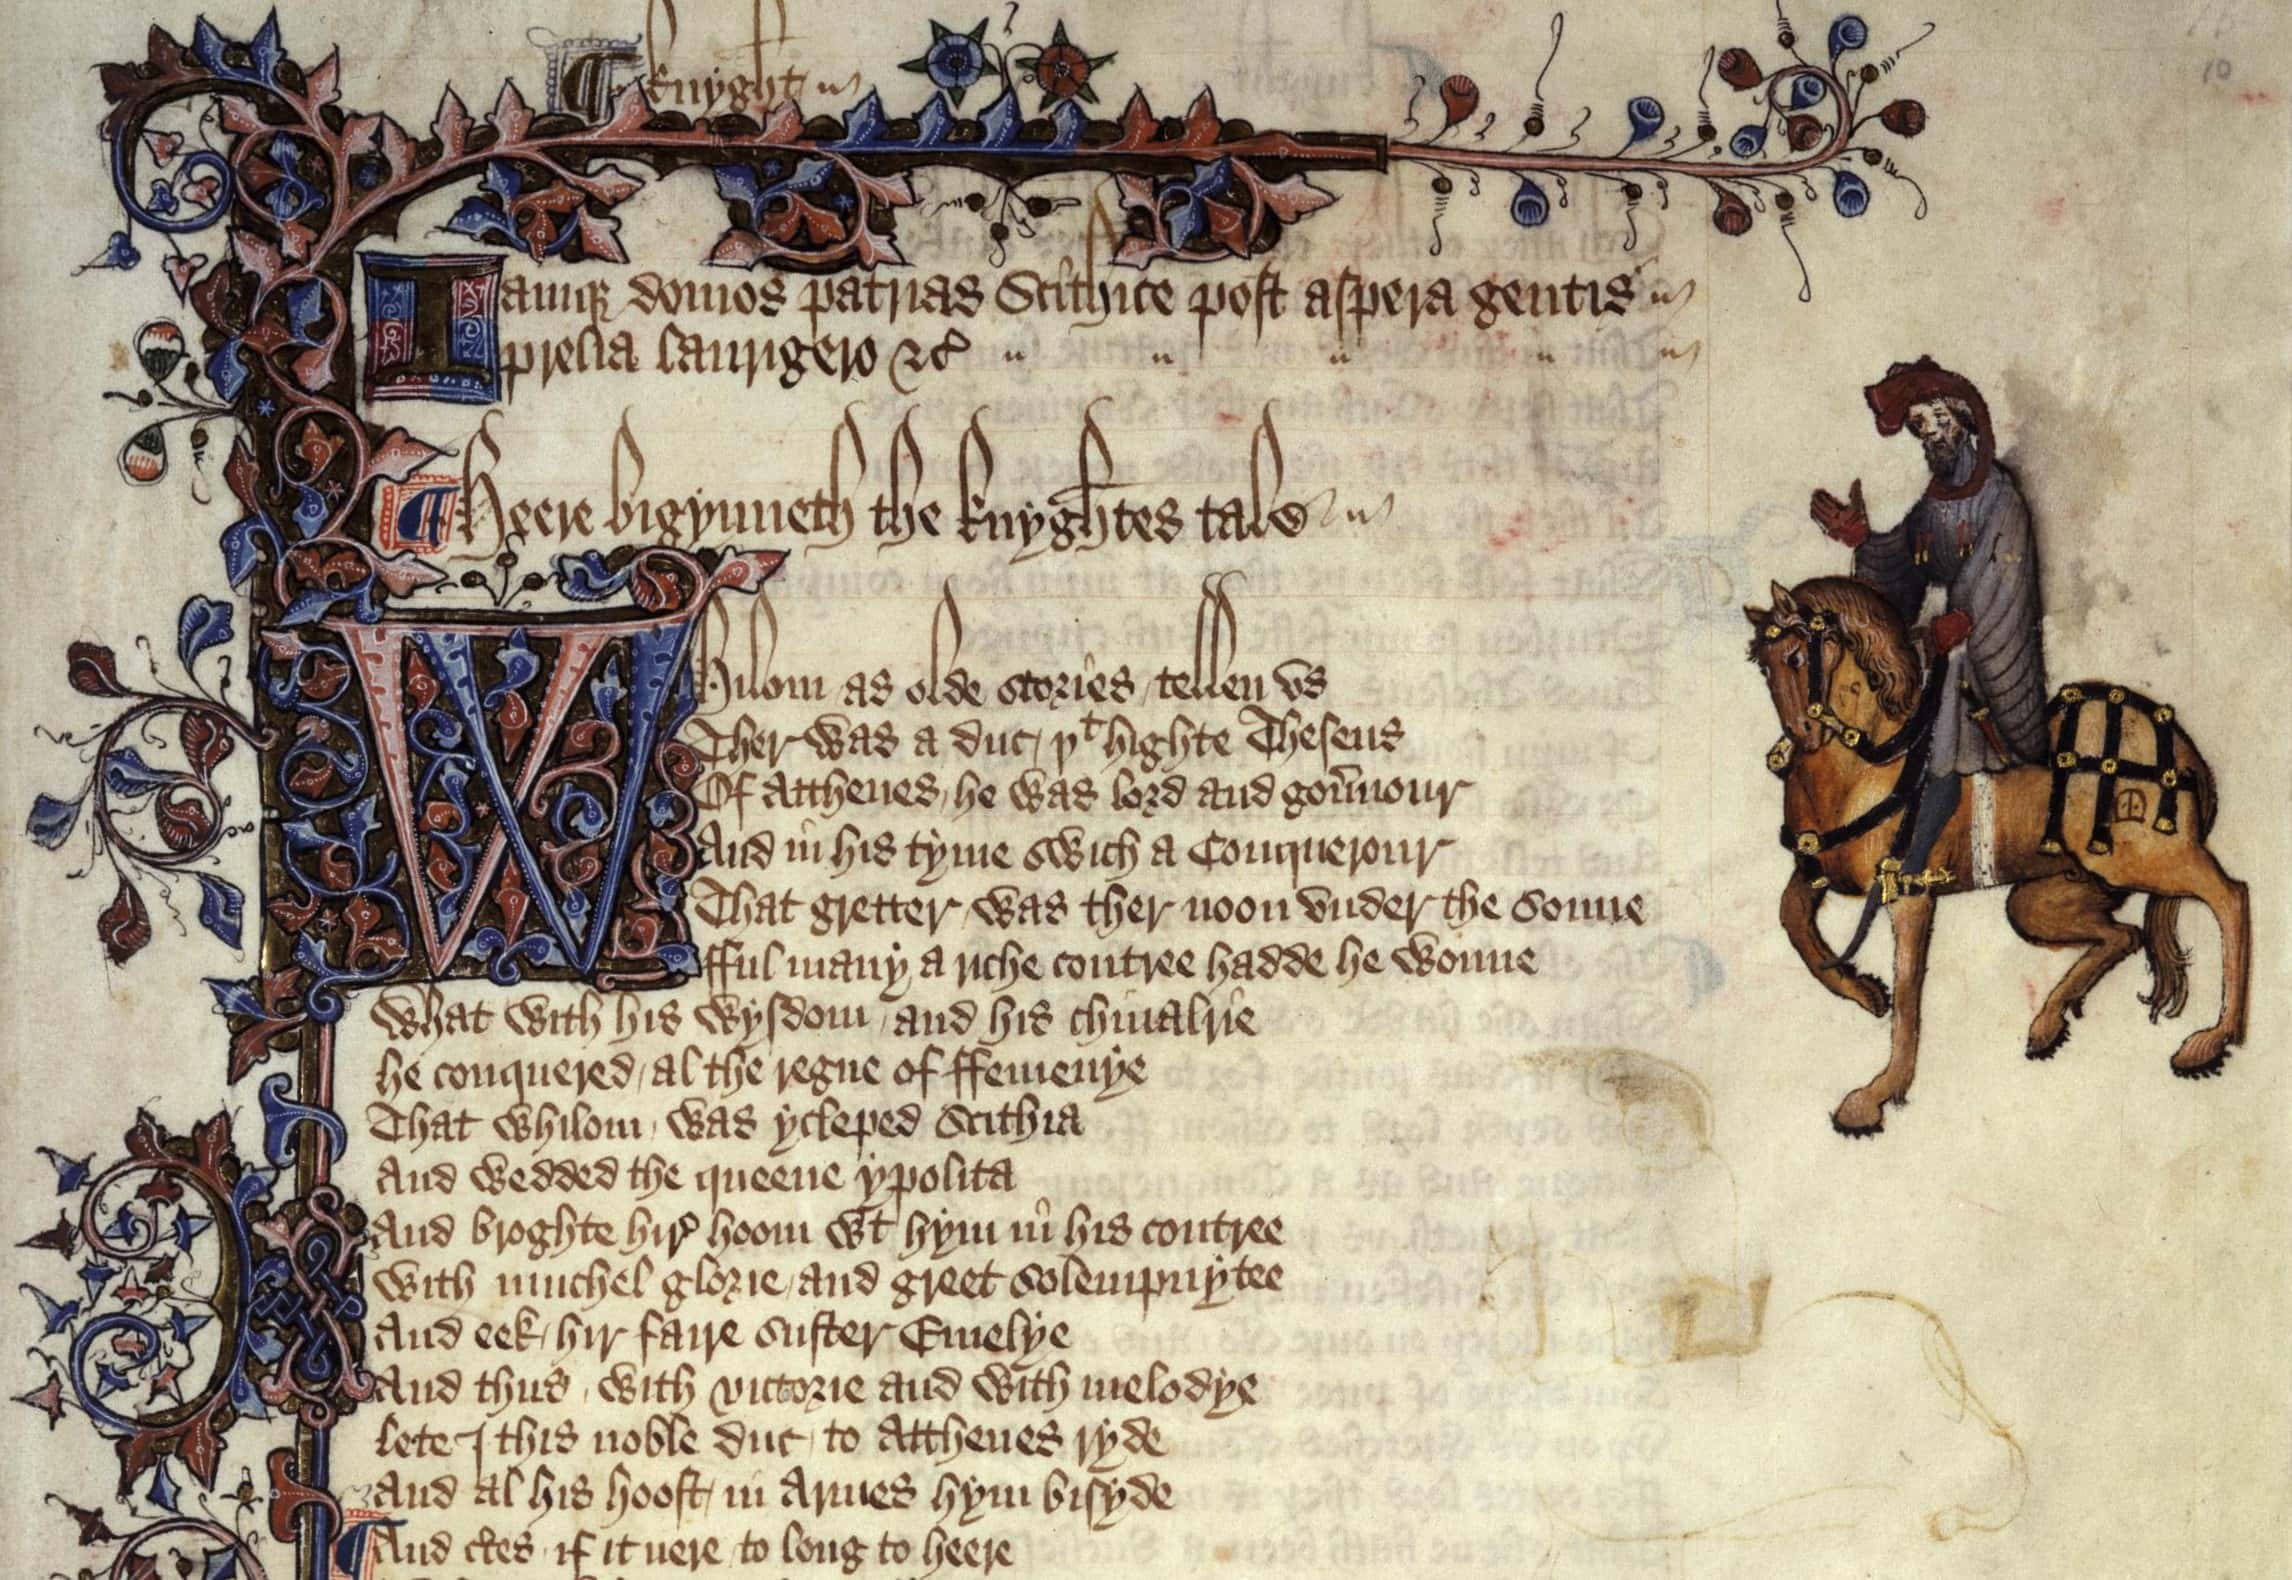 ¶ Knyght
10
Iamque domos patrias Scithice post aspera gentis
prelia laurigero &c
¶ Heere bigynneth the knyghtes tale
Whilom as olde stories tellen vs
Ther was a duc / þt highte Theseus
Of Atthenes / he was lord and gouernour
And in his tyme swich a Conquerour
That gretter / was ther noon vnder the sonne
fful many a riche contree hadde he wonne
What with his wysdom / and his chiualrie
he conquered / al the regne of ffemenye
That whilom / was ycleped Scithia
And wedded the queene ypolita
And broghte hire hoom wt hym in his contree
With muchel glorie / and greet solempnytee
And eek / hir faire suster Emelye
And thus / with victorie and with melodye
lete I this noble duc / to Atthenes ryde
And al his hoost / in Armes hym bisyde
¶ And certes / if it nere / to long to heere